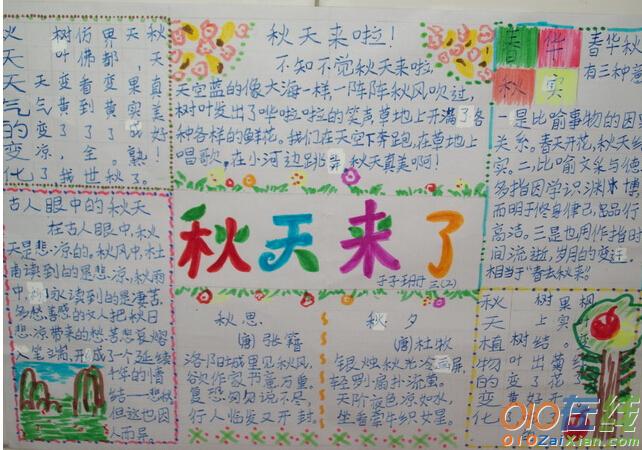 天天气的变化
天气变凉了
树叶变黄了，我
仿佛看到了全世
界都变黄成。秋
天，果实成熟了。
秋天真美好！
古人眼中的秋天
在古人眼中，秋
天是悲凉的。秋风中，杜
甫读到的是悲凉，秋雨
中，永读到的是凄苦。
多愁善感的文人把秋日
悲凉带来的愁苦悲哀熔
延续
千年的情
结——悲秋
但这也因
人而异。
秋天来啦！
不知不觉秋天来啦，
天空蓝的像大海一样，一阵阵秋风吹过，
树叶发出了哗啦啦的笑声草地上开满了各
种各样的鲜花。我们在天空下奔跑，在草地上
唱歌，在小河边跳舞，秋天真美啊！
秋天来了
三(2)
秋思
(唐)张籍
洛阳城里见秋风，
欲作家书意万重。
复恐匆匆说不尽，
行人临发又开封。
秋夕
(唐)杜牧
银烛秋光冷画屏，
轻罗小扇扑流萤。
天阶夜色凉如水，
坐看牵牛织女星。
春华
秋实
春华秋
有三种
一是比喻事物的因
关系。春天开花，秋天结
实。二，比喻文采与德
多指因学识渊博
而明于修身律己，品行
高洁。三是也用作指时
间流逝，岁月的变迁
相当于"春去秋来"。
秋天植物变化
010在线
010ZaiXian.com